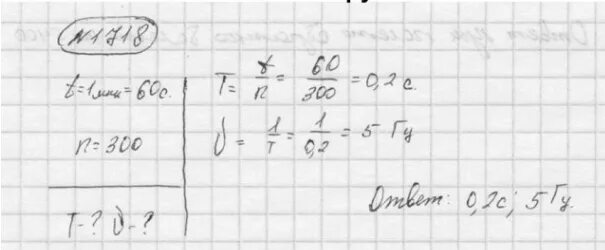 N1718
t=1мин=60с.
n=300
T-? ν-?
T= t/n = 60/300 = 0,2 с.
ν = 1/T = 1/0,2 = 5 Гц
Ответ: 0,2с; 5 Гц.